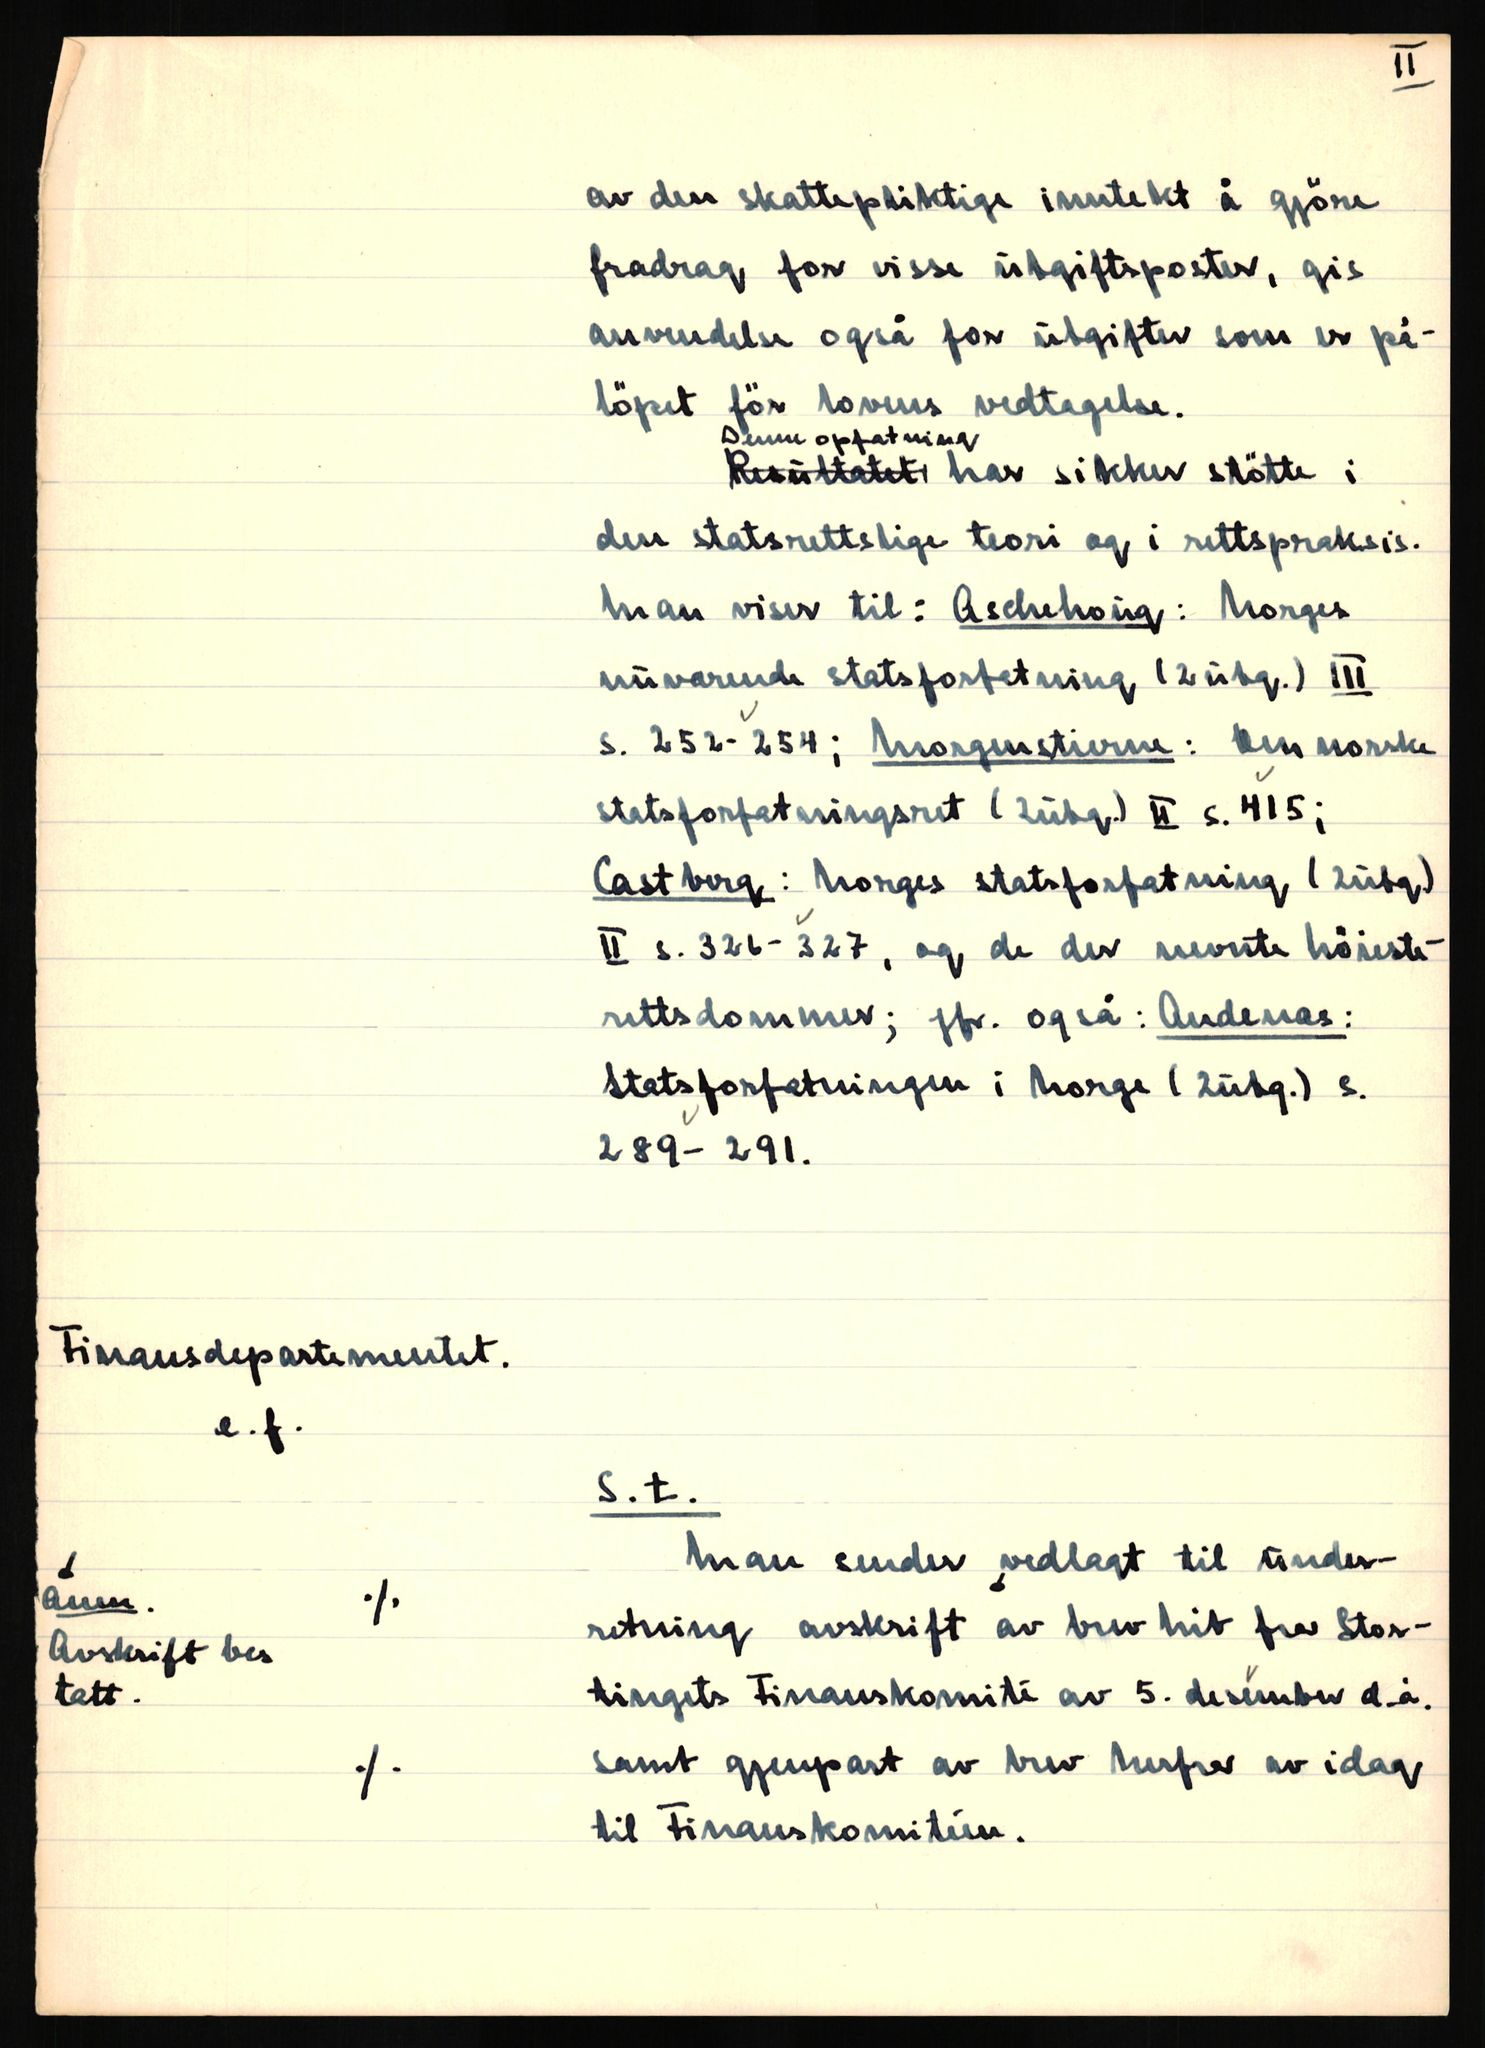 II
av den skattepliktige inntekt å gjöre
fradrag for visse utgiftsposter, gis
anvendelse også for utgifter som er på-
löpet för lovens vedtagelse.
Denne opfatning
Resultatet har sikker stötte i
den statsrettslige teori og i rettspraksis.
Man viser til: Aschehoug: Norges
nuværende statsforfatning (2 utg.) III
s. 252-254; Morgenstierne: Den norske
statsforfatningsret (2 utg.) II s. 415;
Castberg: Norges statsforfatning (2 utg.)
II s. 326-327, og de der nevnte höieste-
rettsdommer; jfr. også: Andenæs:
Statsforfatningen i Norge (2 utg.) s.
289-291.
Finansdepartementet.
e.f.
S.t.
Man sender vedlagt til under-
Anm. ./.
retning avskrift av brev hit fra Stor-
Avskrift bes
tatt.
tingets Finanskomité av 5. desember d.å.
./. samt gjenpart av brev herfra av idag
til Finanskomitéen.